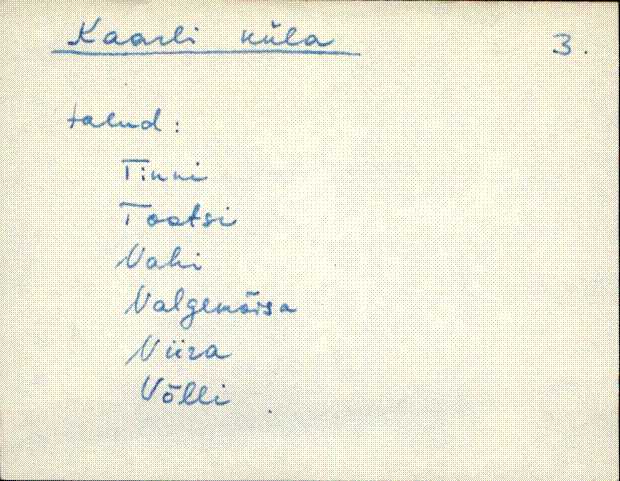 Kaarli küla
3.
talud:
Tinni
Tootsi
Vahi
Valgemõisa
Viira
Võlli